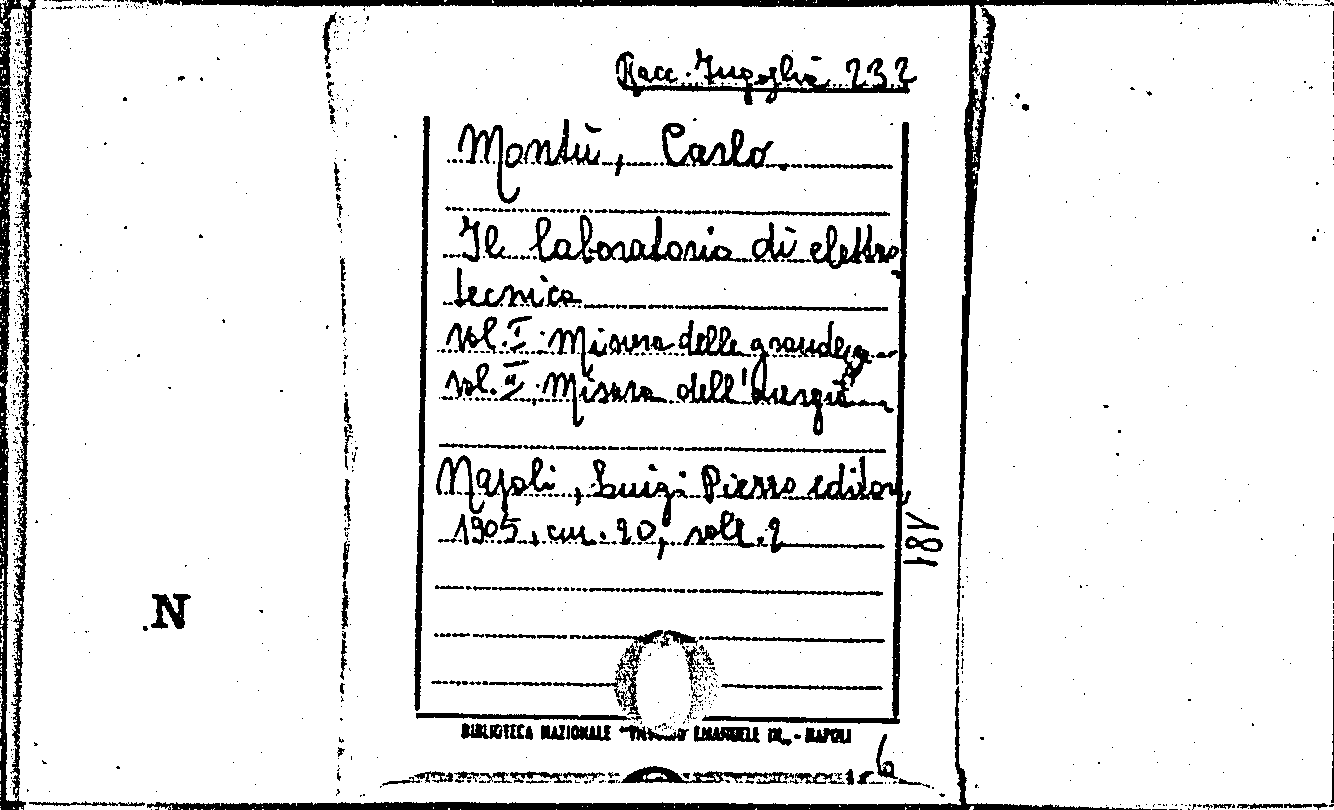 Racc. Ingoglia 232
Montù, Carlo.
Il laboratorio di elettro
tecnica
vol. I. Misura delle grandezze
vol. II. Misura dell'energia
Napoli, Luigi Pierro editore,
1905, cm. 20, voll. 2
181
N
BIBLIOTECA NAZIONALE "VITTORIO EMANUELE III" - NAPOLI